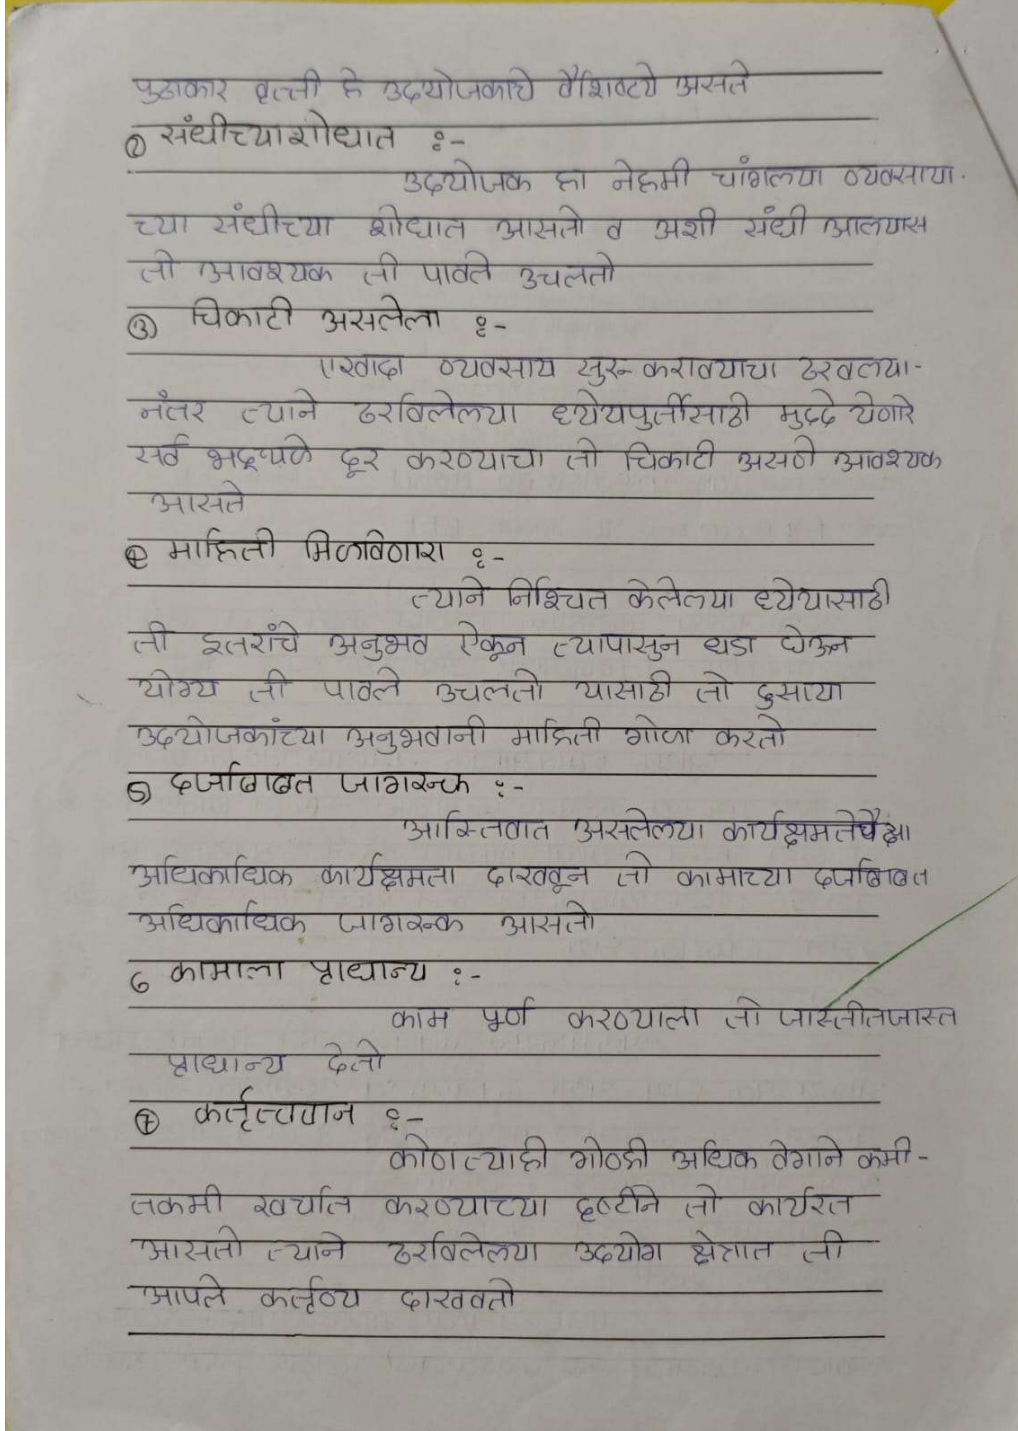 पुढाकार वृत्ती हे उदयोजकाचे वैशिष्टये असते
② संधीच्या शोधात :-
उदयोजक हा नेहमी चांगल्या व्यवसाया-
च्या संधीच्या शोधात आसतो व अशी संधी आलयास
तो आवश्यक ती पावले उचलतो
③ चिकाटी असलेला :-
एखादा व्यवसाय सुरू करावयाचा ठरवल्या-
नंतर त्याने ठरविलेल्या ध्येयपुर्तीसाठी मुद्दे येणारे
सर्व दूर करण्याचा तो चिकाटी असणे आवश्यक
आसते
④ माहिती मिळविणारा :-
त्याने निश्चित केलेल्या ध्येयासाठी
तो इतरांचे अनुभव ऐकून त्यापासुन धडा घेऊन
योग्य ती पावले उचलतो यासाठी तो दुसाया
उदयोजकांच्या अनुभवानी माहिती गोळा करतो
5) दर्जाबाबत जागरूक :-
आस्तिवात असलेल्या कार्यक्षमतेपेक्षा
अधिकाधिक कार्यक्षमता दाखवून तो कामाच्या दर्जाबाबत
अधिकाधिक जागरूक आसतो
6 कामाला प्राधान्य :-
काम पूर्ण करण्याला तो जास्तीतजास्त
प्राधान्य देतो
⑦ कर्तृत्ववान :-
कोणत्याही गोष्टी अधिक वेगाने कमी-
तकमी खर्चात करण्याच्या दृष्टीने तो कार्यरत
आसतो त्याने ठरविलेल्या उदयोग क्षेत्रात तो
आपले कर्तृव्य दाखवतो